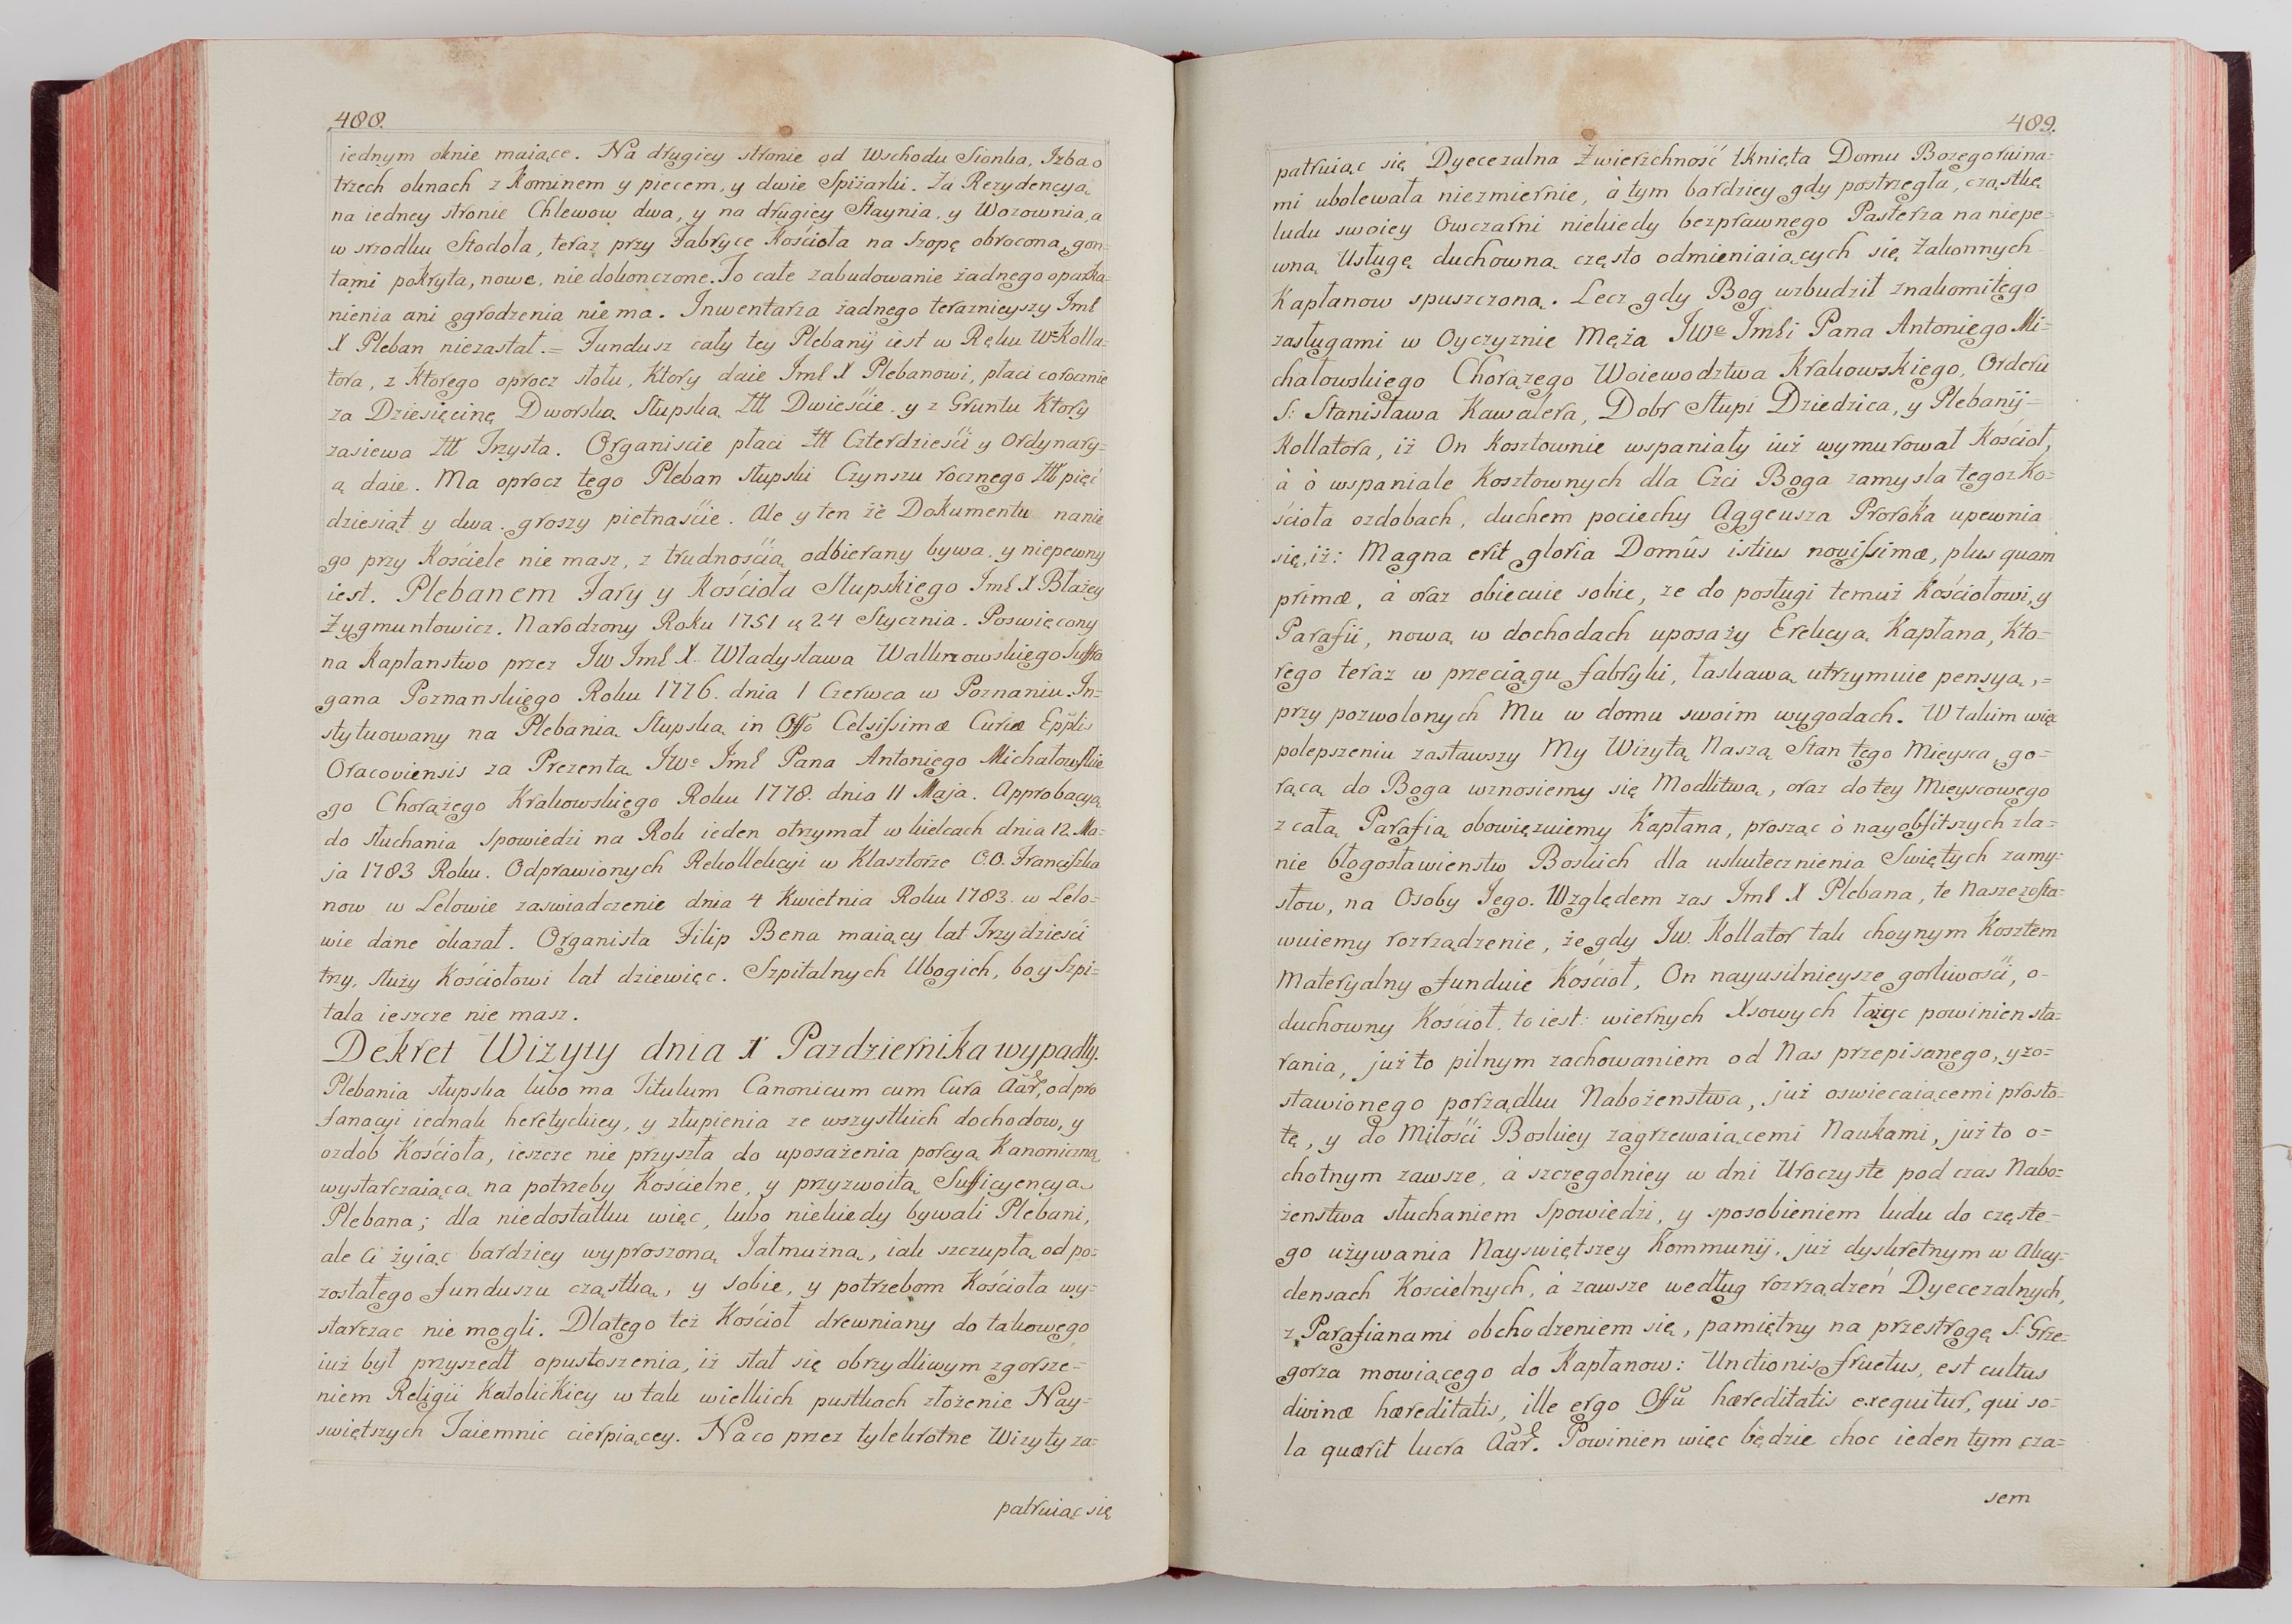 488.
iednym oknie maiące. Na drugiey stronie od Wschodu Sionka, Izba o
trzech oknach z Kominem y piecem, y dwie Spiżarki. Za Rezydencyą
na iedney stronie Chlewow dwa, y na drugiey Staynia, y Wozownia, a
w srzodku Stodoła, teraz przy Fabryce Kościoła na Szopę obrocona, gon=
tami pokryta, nowe, nie dokonczone. To całe zabudowanie żadnego oparka=
nienia ani ogrodzenia nie ma. Inwentarza żadnego teraznieyszy Imć
X Pleban niezastał.= Fundusz cały tey Plebanij iest w Ręku Wº Kolla=
tora, z Ktorego oprocz stołu, Ktory daie Imć X Plebanowi, płaci corocznie
za Dziesięcinę Dworską Słupską Ztt Dwieście y z Gruntu Ktory
zasiewa Ztt Trzysta. Organiscie płaci Ztt Czterdzieści y Ordynary=
ą daie. Ma oprocz tego Pleban Słupski Czynszu rocznego Ztt pięć
dziesiąt y dwa. groszy pietnaście. Ale y ten że Dokumentu nanie
go przy Kościele nie masz, z trudnościa odbierany bywa, y niepewny
iest. Plebanem Fary y Kościoła Słupskiego Imć X Błażey
Zygmuntowicz. Narodzony Roku 1751 ą 24 Stycznia. Poswięcony
na Kapłanstwo przez Jw Imć X. Władysława Walknowskiego Suffra
gana Poznanskiego Roku 1776. dnia 1 Czerwca w Poznaniu. In=
stytuowany na Plebanią Słupską in Offo Celsissimæ Curiæ Epplis
Cracoviensis za Prezentą JWº Imć Pana Antoniego Michałowskie
go Chorążego Krakowskiego Roku 1778. dnia 11 Maja. Approbacyą
do słuchania Spowiedzi na Rok ieden otrzymał w Kielcach dnia 12. Ma=
ja 1783 Roku. Odprawionych Rekollekcyi w Klasztorze O.O. Franciszka
now w Lelowie zaswiadczenie dnia 4 Kwietnia Roku 1783. w Lelo=
wie dane okazał. Organista Filip Bena maiący lat Trzydzieści
trzy, służy Kościołowi lat dziewięc. Szpitalnych Ubogich, bo y Szpi=
tala ieszcze nie masz.
Dekret Wizyty dnia X Pazdziernika wypadły.
Plebania słupska lubo ma Titulum Canonicum cum Cura Aãr, od pro
fanacyi iednak heretyckiey, y złupienia ze wszystkich dochodow, y
ozdob Kościoła, ieszcze nie przyszła do uposażenia porcyą Kanoniczną
wystarczaiącą na potrzeby Kościelne, y przyzwoitą Sufficyencyą
Plebana; dla niedostatku więc, lubo niekiedy bywali Plebani,
ale ci żyiąc bardziey wyproszoną Jałmużną, iak szczupłą od po=
zostałego funduszu cząstką, y sobie, y potrzebom Kościoła wy=
starczac nie mogli. Dlatego też Kościoł drewniany do takowego
iuż był przyszedł opustoszenia, iż stał się obrzydliwym zgorsze=
niem Religii Katolickiey w tak wielkich pustkach złożenie Nay=
swiętszych Taiemnic cierpiącey. Na co przez tylekrotne Wizyty za=
patruiąc się
489.
patruiąc się Dyecezalna Zwierzchność tknięta Domu Bozego ruina=
mi ubolewała niezmiernie, à tym bardziey gdy postrzegła, cząstkę
ludu swoiey Owczarni niekiedy bezprawnego Pasterza na niepe=
wną Usługę duchowną często odmieniaiących się Zakonnych
Kapłanow spuszczoną. Lecz gdy Bog wzbudził znakomitego
zasługami w Oyczyznie Męża JWº Imći Pana Antoniego Mi=
chałowskiego Chorążego Woiewodztwa Krakowskiego, Orderu
S: Stanisława Kawalera, Dobr Słupi Dziedzica, y Plebanij=
Kollatora, iż On kosztownie wspaniały iuż wymurował Kościoł,
à ò wspaniale Kosztownych dla Czci Boga zamysla tegoz Ko=
ścioła ozdobach, duchem pociechy Aggeusza Proroka upewnia
się, iż: Magna erit gloria Domûs istius novissimæ, plus quam
primæ, à oraz obiecuie sobie, ze do posługi temuż Kościołowi, y
Parafii, nową w dochodach uposaży Erekcyą Kapłana, Kto=
rego teraz w przeciągu fabryki, łaskawą utrzymuie pensyą,=
przy pozwolonych Mu w domu swoim wygodach. W takim więc
polepszeniu zastawszy My Wizytą Naszą Stan tego Mieysca, go=
rącą do Boga wznosiemy się Modlitwą, oraz do tey Mieyscowego
z całą Parafią obowięzuiemy Kapłana, prosząc ò nayobfitszych zla=
nie błogosławienstw Boskich dla uskutecznienia Swiętych zamy=
słow, na Osoby Jego. Względem zas Imć X Plebana, te Nasze zosta=
wuiemy rozrządzenie, że gdy Jw. Kollator tak choynym Kosztem
Materyalny funduie Kościoł, On nayusilnieysze gorliwości, o=
duchowny Kościoł, to iest: wiernych Xsowych łożyc powinien sta=
rania, już to pilnym zachowaniem od Nas przepisanego, y zo=
stawionego porządku Nabożenstwa, już oswiecaiącemi prosto=
tę, y do Miłości Boskiey zagrzewaiącemi Naukami, już to o=
chotnym zawsze, à szczegolniey w dni Uroczyste pod czas Nabo=
żenstwa słuchaniem Spowiedzi, y sposobieniem ludu do częste=
go używania Nayswiętszey Kommunij, już dyskretnym w Akcy=
densach Koscielnych, à zawsze według rozrządzeń Dyecezalnych,
z Parafianami obchodzeniem się, pamiętny na przestrogę S. Grze=
gorza mowiącego do Kapłanow: Unctionis fructus, est cultus
divinæ hæreditatis, ille ergo Offũ hæreditatis exequitur, qui so=
la quærit lucra Aãr. Powinien więc będzie choc ieden tym cza=
sem